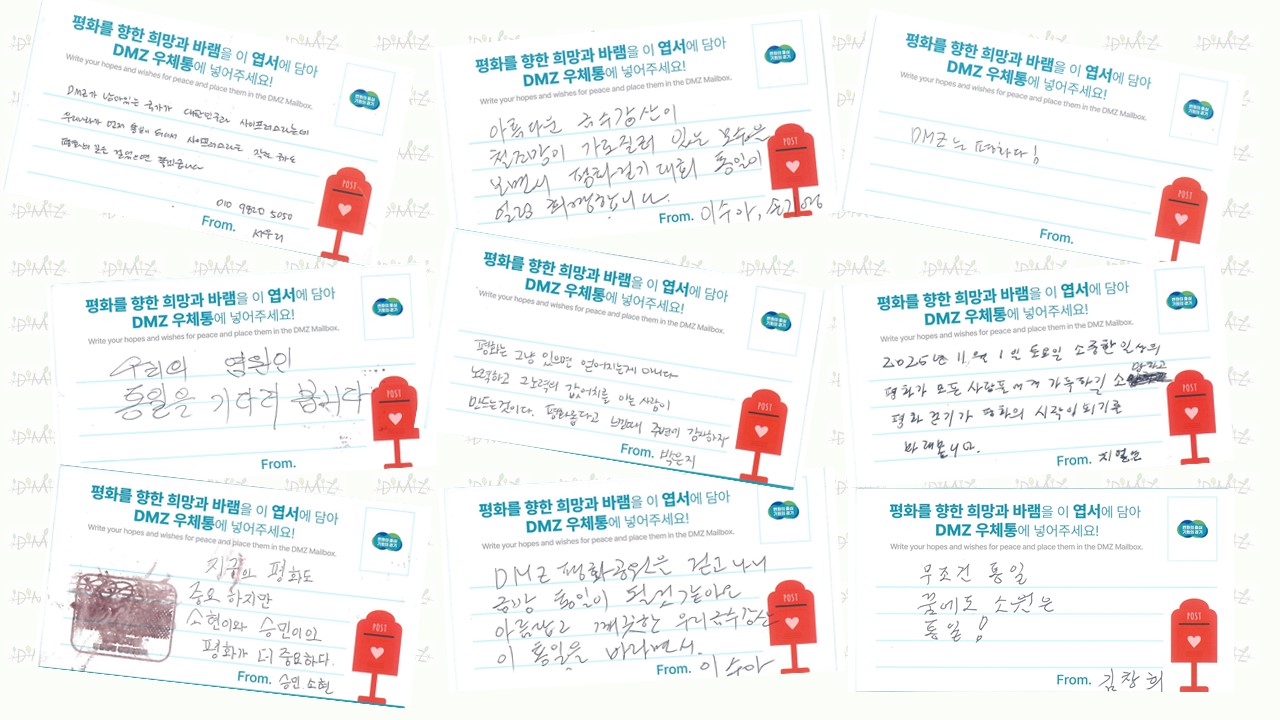 평화를 향한 희망과 바램을 이 엽서에 담아
DMZ 우체통에 넣어주세요!
Write your hopes and wishes for peace and place them in the DMZ Mailbox.
DMZ가 남아있는 국가가 대한민국과 사이프러스라는데
우리나라가 먼저 통일이 되어서 사이프러스라는 작은 나라도
평화의 길을 걸었으면 좋겠습니다
010 9820 5050
POST
From. 서우리
평화를 향한 희망과 바램을 이 엽서에 담아
DMZ 우체통에 넣어주세요!
Write your hopes and wishes for peace and place them in the DMZ Mailbox.
아름다운 금수강산이
철조망이 가로질러 있는 모습을
보면서 평화걷기 대회 통일이
얼른 희망합니다.
POST
From. 이수아,
평화를 향한 희망과 바램을 이 엽서에 담아
DMZ 우체통에 넣어주세요!
Write your hopes and wishes for peace and place them in the DMZ Mailbox.
DMZ는 평화다!
POST
From.
평화를 향한 희망과 바램을 이 엽서에 담아
DMZ 우체통에 넣어주세요!
Write your hopes and wishes for peace and place them in the DMZ Mailbox.
우리의 염원인
통일을 기다려 봅시다
POST
From.
평화를 향한 희망과 바램을 이 엽서에 담아
DMZ 우체통에 넣어주세요!
Write your hopes and wishes for peace and place them in the DMZ Mailbox.
평화는 그냥 있으면 얻어지는게 아니다
노력하고 그노력의 값어치를 아는 사람이
만드는것이다. 평화롭다고 느낄때 주변에 감사하자
POST
From. 박은지
평화를 향한 희망과 바램을 이 엽서에 담아
DMZ 우체통에 넣어주세요!
Write your hopes and wishes for peace and place them in the DMZ Mailbox.
2025년 11월 1일 토요일 소중한 일상의
평화가 모든 사람들에게 가득하길 소망하고
평화 걷기가 평화의 시작이 되기를
바래봅니다.
POST
From.
평화를 향한 희망과 바램을 이 엽서에 담아
DMZ 우체통에 넣어주세요!
Write your hopes and wishes for peace and place them in the DMZ Mailbox.
지금의 평화도
중요 하지만
소현이와 승민이의
평화가 더 중요하다.
POST
From. 승민 소현
평화를 향한 희망과 바램을 이 엽서에 담아
DMZ 우체통에 넣어주세요!
Write your hopes and wishes for peace and place them in the DMZ Mailbox.
DMZ 평화공원을 걷고 나니
금방 통일이 될것 같아요
아름답고 깨끗한 우리금수강산
이 통일을 바라면서.
POST
From. 이수아
평화를 향한 희망과 바램을 이 엽서에 담아
DMZ 우체통에 넣어주세요!
Write your hopes and wishes for peace and place them in the DMZ Mailbox.
무조건 통일
꿈에도 소원은
통일!
POST
From. 김창희